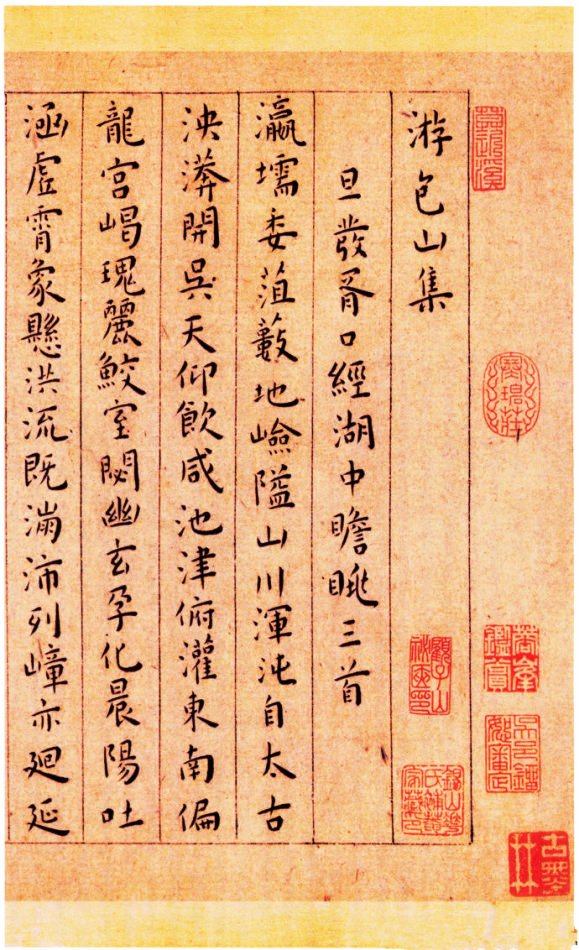 游包山集
旦發胥口經湖中瞻眺三首
瀛壖委菹藪地嶮隘山川渾沌自太古
泱漭開吳天仰飲咸池津俯灌東南偏
龍宮嵑瑰麗鮫室閟幽玄孕化晨陽吐
涵虛霄象懸洪流既滿沛列嶂亦廻延
寒碧莊